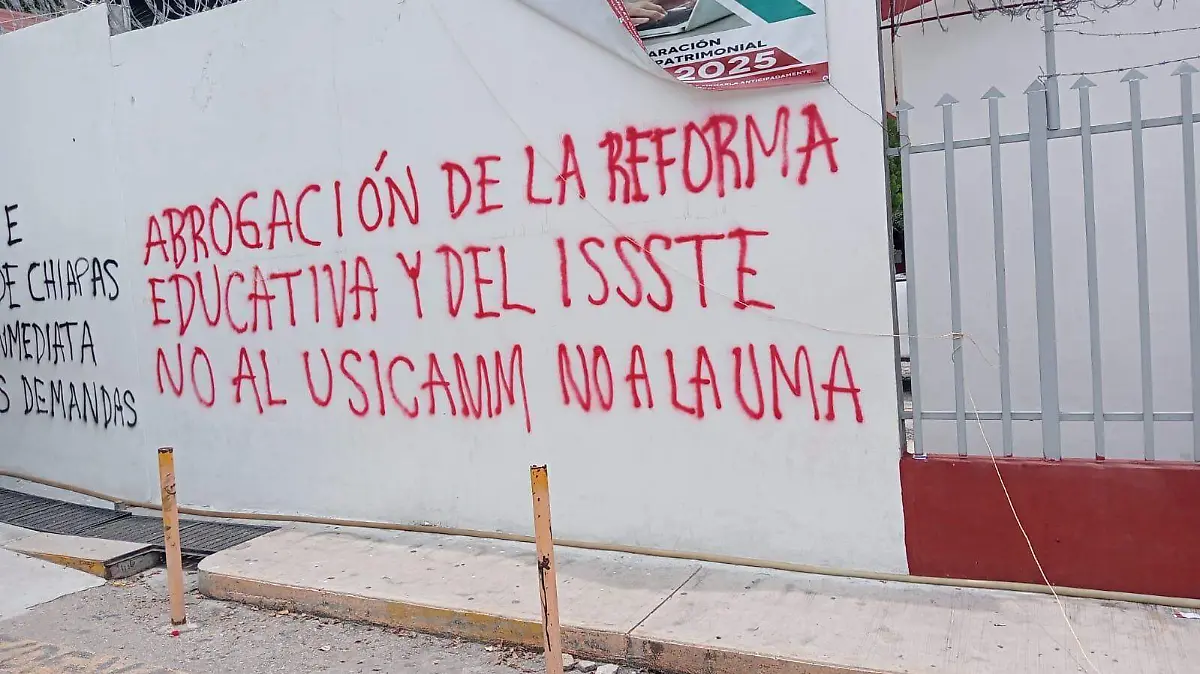 ARACIÓN
PATRIMONIAL
2025
ANTICIPADAMENTE
ABROGACIÓN DE LA REFORMA
EDUCATIVA Y DEL ISSSTE
NO AL USICAMM NO A LA UMA
E
DE CHIAPAS
NMEDIATA
S DEMANDAS